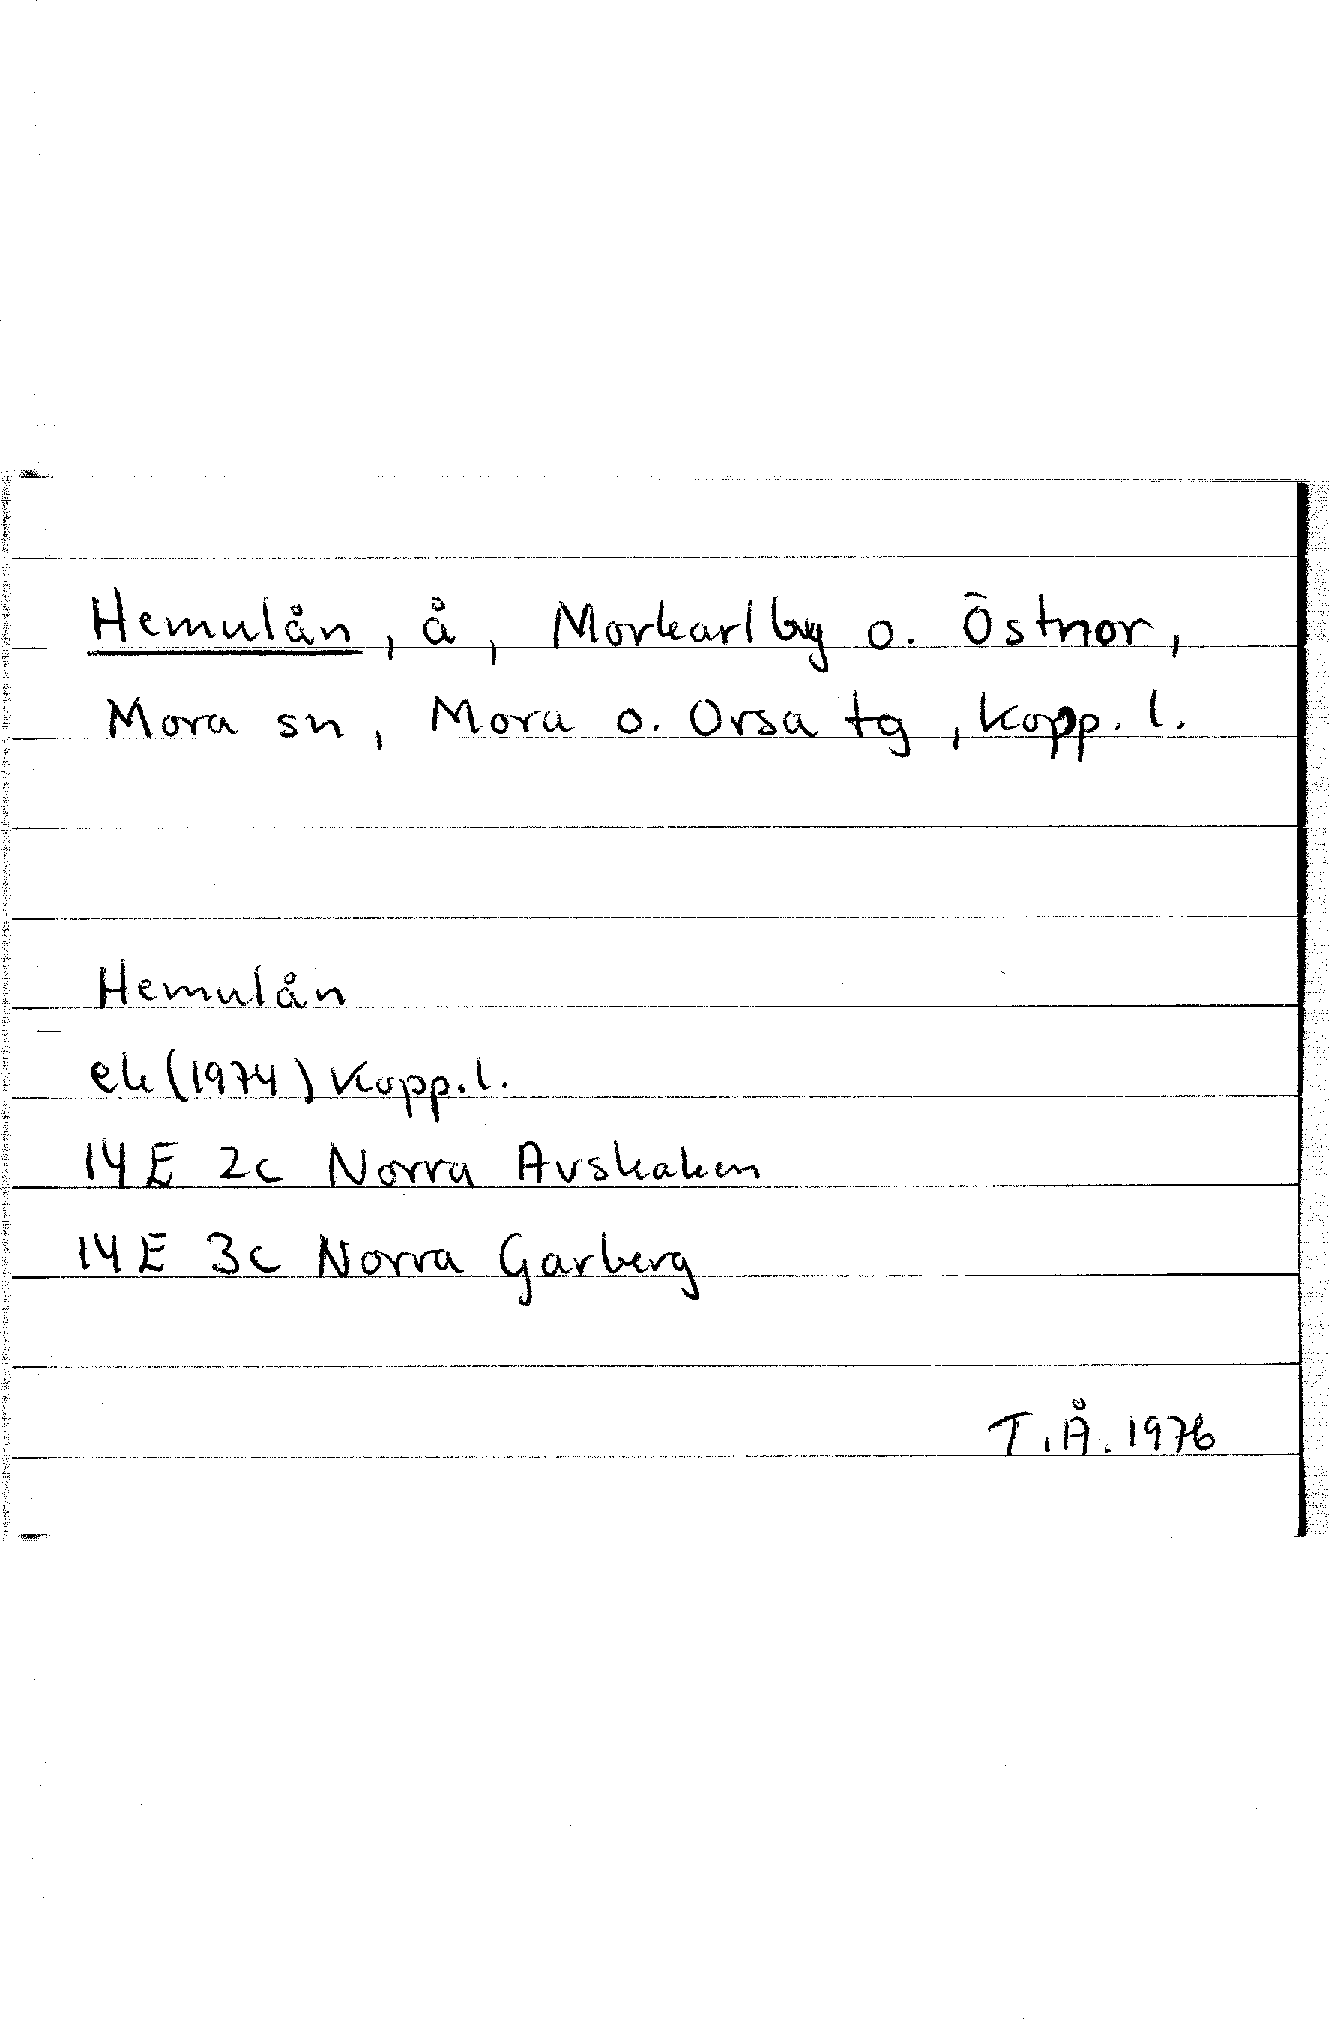 Hemulån, å, Morkarlby o. Östnor,
Mora sn, Mora o. Orsa tg, Kopp. l.
Hemulån
ek (1974) Kopp. l.
14 E 2c Norra Avskaken
14 E 3c Norra Garberg
T.Å. 1976